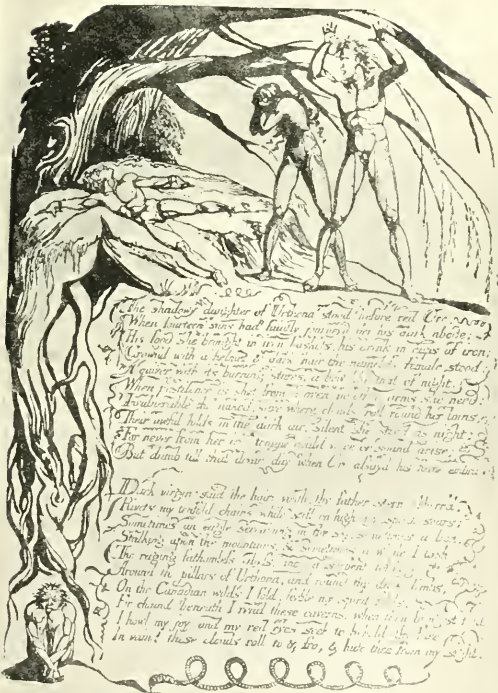 The shadowy daughter of Urthona stood before red Orc
When fourteen suns had faintly his dark abode;
His food she brought in iron baskets, his drink in cups of iron;
Crown'd with a helmet & dark hair the nameless female stood;
A quiver with its burning stores, a bow that of night,
When pestilence is shot from heaven she need
Invulnerable tho' naked, save where clouds roll round her loins,
Their awful folds in the dark air, Silent she stood as night;
For never from her iron tongue could voice or sound arise;
But dumb till that day when Orc his fierce
Dark virgin; said the hairy youth, thy father stern abhorr'd;
Rivets my tenfold chains while still on high my spirit soars;
Sometimes an eagle screaming in the sky, sometimes a lion,
Stalking upon the mountains, & sometimes a whale I lash
The raging fathomless abyss, a serpent
Around the pillars of Urthona, and round thy limbs,
On the Canadian wilds I fold, feeble my spirit
For chaind beneath I rend these caverns; when thou bringest
I howl my joy and my red eyes seek to behold thy face
In vain! these clouds roll to & fro, & hide thee from my sight.